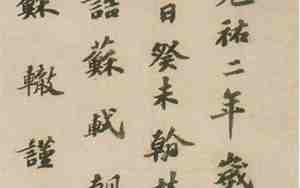 元祐二年歲
日癸未翰林
誥蘇軾朝
蘇轍謹